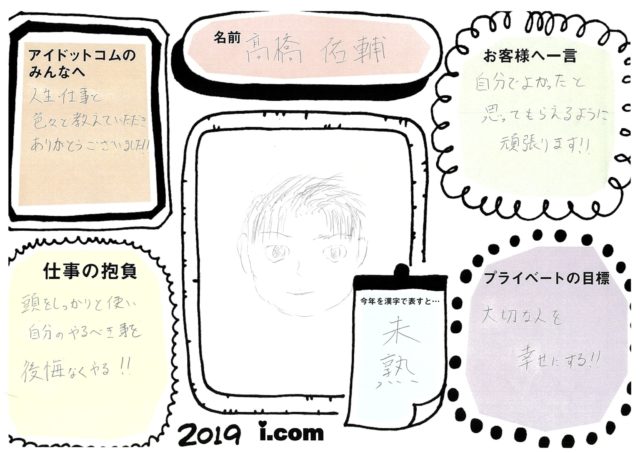 名前 髙橋 佑輔
アイドットコムの
みんなへ
人生・仕事と
色々と教えていただき
ありがとうございました!!
お客様へ一言
自分でよかったと
思ってもらえるように
頑張ります!!
仕事の抱負
頭をしっかりと使い
自分のやるべき事を
後悔なくやる!!
今年を漢字で表すと…
未
熟
プライベートの目標
大切な人を
幸せにする!!
2019 i.com